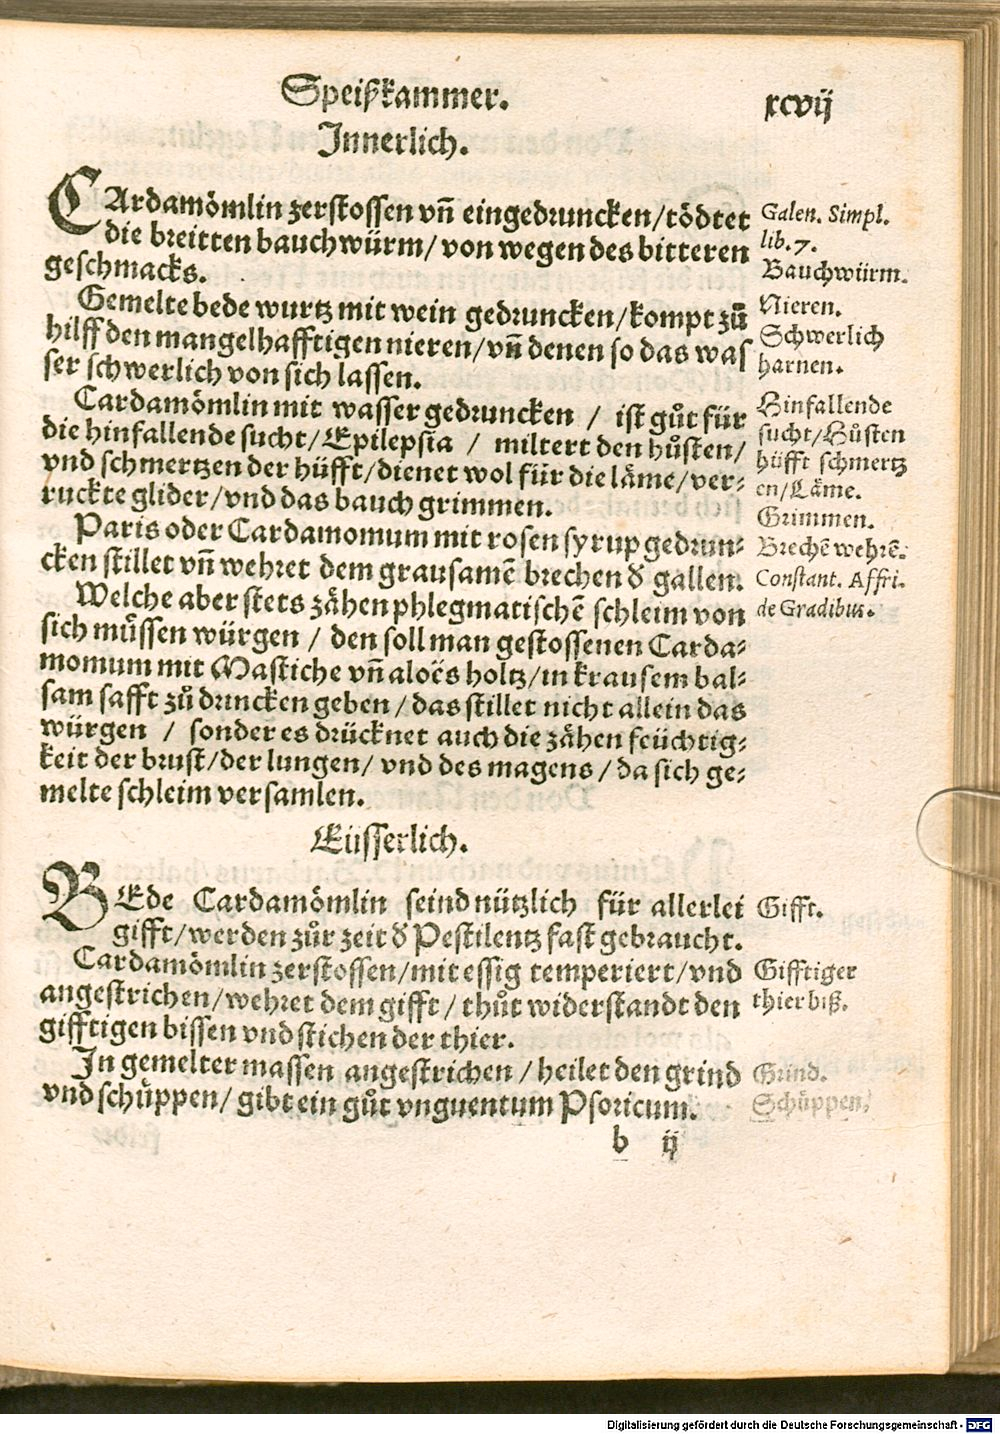 Speißkammer.
xcvij
Innerlich.
CArdamömlin zerstossen vnñ eingedruncken/tödtet
die breitten bauchwürm/von wegen des bitteren
geschmacks.
Galen. Simpl.
lib. 7.
Bauchwürm.
Gemelte bede wurtz mit wein gedruncken/kompt zů
hilff den mangelhafftigen nieren/vnñ denen so das was
ser schwerlich von sich lassen.
Nieren.
Schwerlich
harnen.
Cardamömlin mit wasser gedruncken / ist gůt für
die hinfallende sucht/Epilepsia / miltert den hůsten/
vnd schmertzen der hüfft/dienet wol für die läme/ver⸗
ruckte glider/vnd das bauch grimmen.
Hinfallende
sucht/Hůsten
hüfft schmertz
en/Läme.
Grimmen.
Paris oder Cardamomum mit rosen syrup gedrun⸗
cken stillet vnñ wehret dem grausamē brechen d̕ gallen.
Brechē wehrē.
Constant. Affri.
de Gradibus.
Welche aber stets zähen phlegmatischē schleim von
sich müssen würgen / den soll man gestossenen Carda⸗
momum mit Mastiche vnñ aloës holtz/in krausem bal⸗
sam safft zů druncken geben/das stillet nicht allein das
würgen / sonder es drücknet auch die zähen feüchtig⸗
keit der brust/der lungen/ vnd des magens/da sich ge⸗
melte schleim versamlen.
Eüsserlich.
BEde Cardamömlin seind nützlich für allerlei
gifft/werden zůr zeit d̕ Pestilentz fast gebraucht.
Gifft.
Cardamömlin zerstossen/mit essig temperiert/vnd
angestrichen/wehret dem gifft/ thůt widerstandt den
gifftigen bissen vnd stichen der thier.
Gifftiger
thier biß.
In gemelter massen angestrichen/heilet den grind
vnd schüppen/ gibt ein gůt vnguentum Psoricum.
Grind.
Schüppen.
b ij
Digitalisierung gefördert durch die Deutsche Forschungsgemeinschaft - DFG